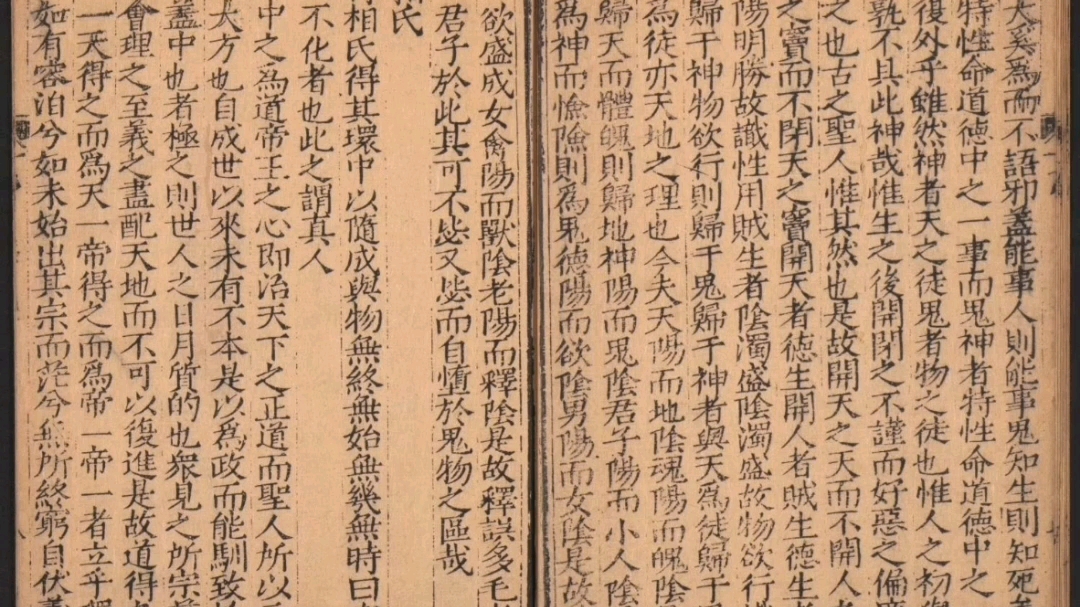 大奚為而不語邪蓋能事人則能事鬼知生則知死
特性命道德中之一事而鬼神者特性命道德中之
復外乎雖然神者天之徒鬼者物之徒也惟人之初
孰不具此神哉惟生之後開閉之不謹而好惡之偏
之也古之聖人惟其然也是故開天之天而不開人
之竇而不閉天之竇開天者德生開人者賊生德生
陽明勝故識性用賊生者陰濁盛陰濁盛故物欲行
歸于神物欲行則歸于鬼歸于神者與天為徒歸于
為徒亦天地之理也今夫天陽而地陰魂陽而魄陰
歸天而體魄則歸地神陽而鬼陰君子陽而小人陰
為神而憸險則為鬼德陽而欲陰男陽而女陰是故
欲盛成女禽陽而獸陰老陽而釋陰是故釋誤多毛
君子於此其可不毖又毖而自墮於鬼物之區哉
氏
相氏得其環中以隨成與物無終無始無幾無時曰
不化者也此之謂真人
中之為道帝王之心即治天下之正道而聖人所以
大方也自成世以來未有不本是以為政而能馴致
蓋中也者極之則世人之日月質的也眾見之所宗
會理之至義之盡配天地而不可以復進是故道得
一天得之而為天一帝得之而為帝一帝一者立乎
如有容泊兮如未始出其宗而茫兮無所終窮自伏